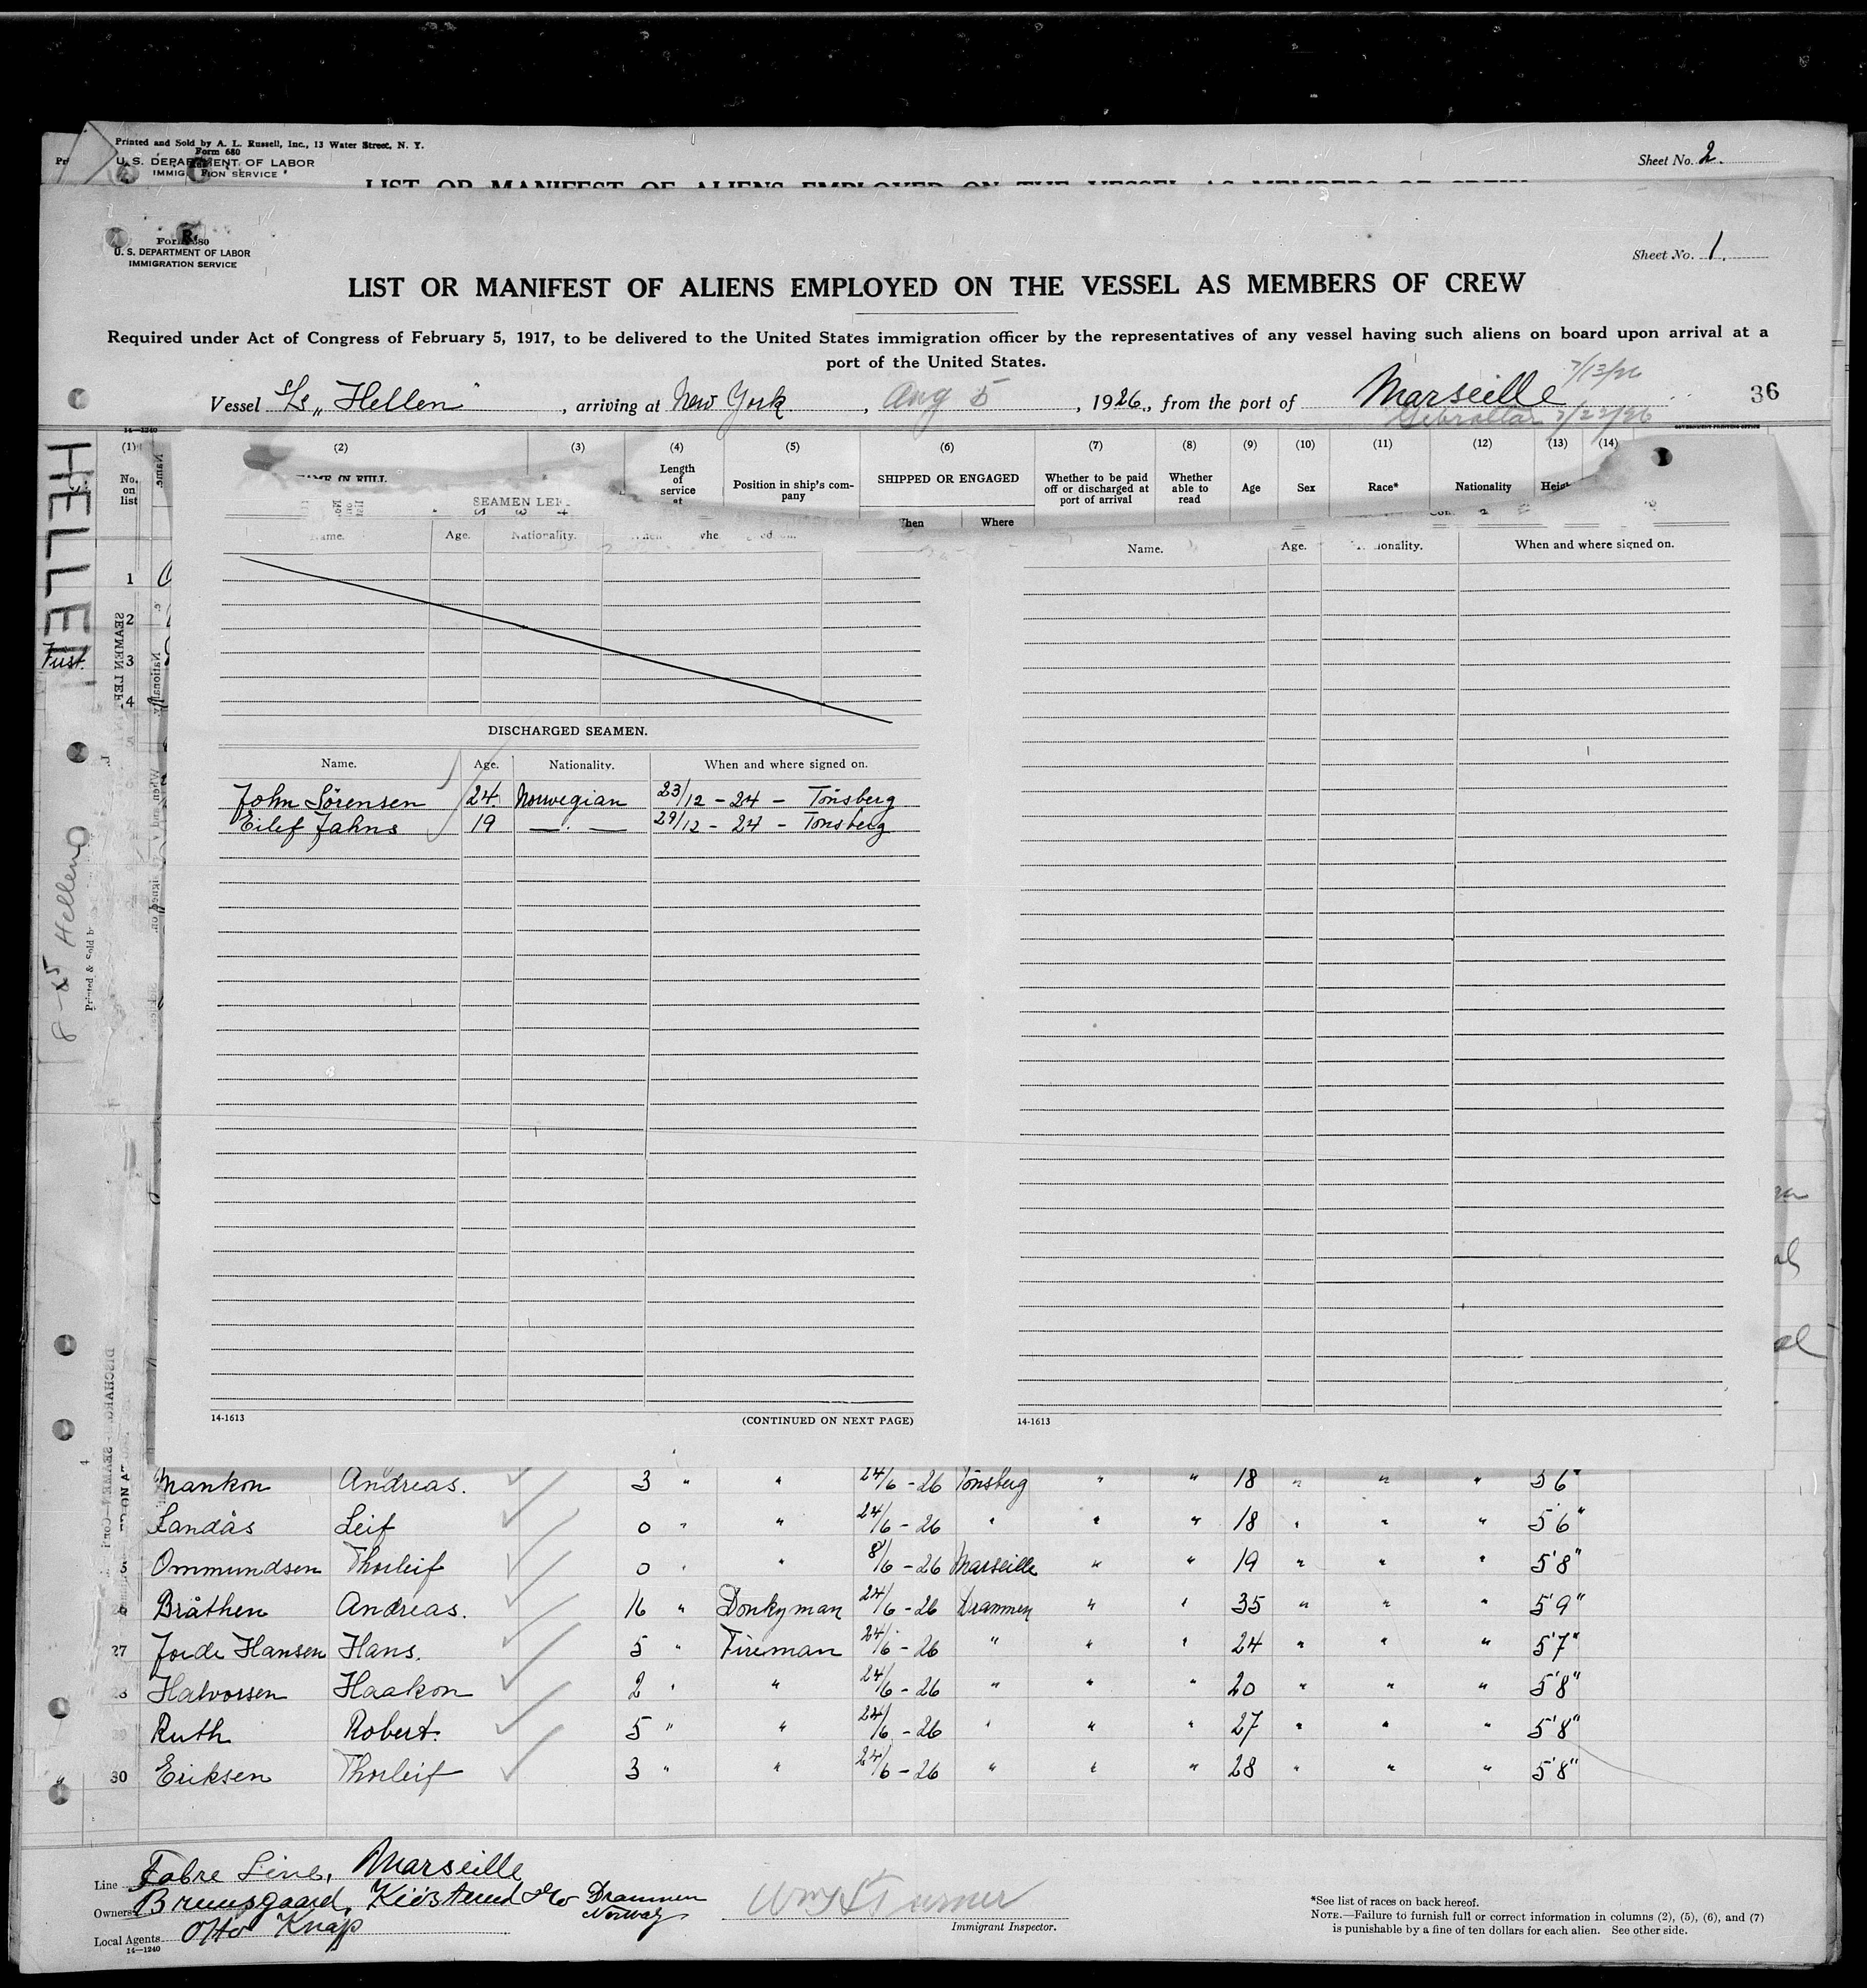 Printed and Sold by A. L. Russell, Inc., 13 Water Street, N. Y.
Form 680
U. S. DEPARTMENT OF LABOR
IMMIGRATION SERVICE
Sheet No. 2.
LIST OR MANIFEST OF ALIENS EMPLOYED ON THE VESSEL AS MEMBERS OF CREW
Form 680
U. S. DEPARTMENT OF LABOR
IMMIGRATION SERVICE
Sheet No. 1.
LIST OR MANIFEST OF ALIENS EMPLOYED ON THE VESSEL AS MEMBERS OF CREW
Required under Act of Congress of February 5, 1917, to be delivered to the United States immigration officer by the representatives of any vessel having such aliens on board upon arrival at a
port of the United States.
7/13/26
Vessel S/s „Hellen", arriving at New York, Aug 5, 1926, from the port of Marseille 36
Gibraltar 7/22/26
14-1240
GOVERNMENT PRINTING OFFICE
(1) (2) (3) (4) (5) (6) (7) (8) (9) (10) (11) (12) (13) (14)
No. on list
NAME IN FULL
Length of service at
Position in ship's company
SHIPPED OR ENGAGED
When Where
Whether to be paid off or discharged at port of arrival
Whether able to read
Age Sex Race* Nationality
HELLEN
First
8-5 Hellen
Printed & Sold b
SEAMEN LEF
Name. Age. Nationality.
Name. Age. Nationality. When and where signed on.
1
2
3
4
DISCHARGED SEAMEN.
Name. Age. Nationality. When and where signed on.
John Sörensen 24. Norwegian 23/12 - 24 - Tönsberg
Eilef Jahns 19 —.— 29/12 - 24 - Tönsberg
14-1613 (CONTINUED ON NEXT PAGE) 14-1613
Mankon Andreas. 3 " " 24/6 - 26 Tönsberg " " 18 " " " 5'6"
Sandås Leif 0 " " 24/6 - 26 " " " 18 " " " 5'6"
5 Ommundsen Thorleif 0 " " 8/6 - 26 Marseille " " 19 " " " 5'8"
Bråthen Andreas. 16 " Donkyman 24/6 - 26 Drammen " " 35 " " " 5'9"
27 Jorde Hansen Hans. 5 " Fireman 24/6 - 26 " " " 24 " " " 5'7"
28 Halvorsen Haakon 2 " " 24/6 - 26 " " " 20 " " " 5'8"
29 Ruth Robert. 5 " " 24/6 - 26 " " " 27 " " " 5'8"
30 Eriksen Thorleif 3 " " 24/6 - 26 " " " 28 " " " 5'8"
Line Fabre Line, Marseille
Owners Bruusgaard, Kiösterud & Co Drammen
Norway
Local Agents Otto Knap
14-1240
Immigrant Inspector.
*See list of races on back hereof.
NOTE.—Failure to furnish full or correct information in columns (2), (5), (6), and (7)
is punishable by a fine of ten dollars for each alien. See other side.